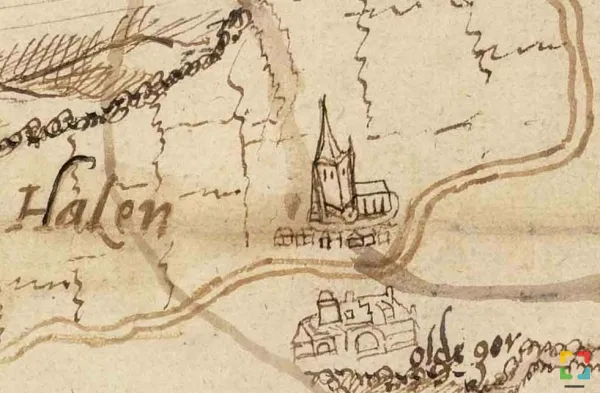 Halen
olde gor